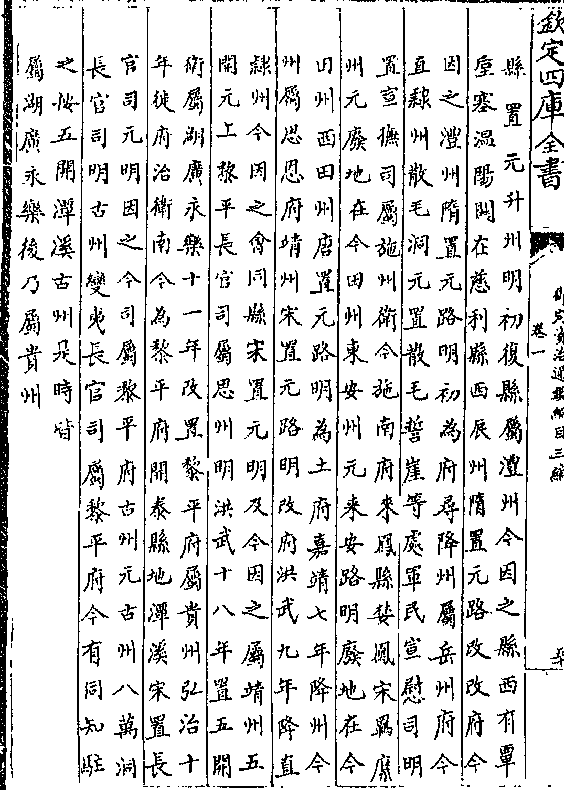 欽定四庫全書
縣置元升州明初復縣屬澧州今因之縣西有覃
垕塞温陽關在慈利縣西展州隋置元路改改府今
因之澧州隋置元路明初為府尋降州屬岳州府今
直隸州散毛洞元置散毛誓崖等處軍民宣慰司明
置宣撫司屬施州衛今施南府來鳳縣婪鳳宋羈縻
州元廢地在今田州東安州元来安路明廢地在今
田州西田州唐置元路明為土府嘉靖七年降州今
州屬思恩府靖州宋置元路明改府洪武九年降直
隸州今因之會同縣宋置元明及今因之屬靖州五
開元上黎平長官司屬思州明洪武十八年置五開
衛屬湖廣永樂十一年改置黎平府屬貴州弘治十
年徙府治衛南今為黎平府開泰縣地潭溪宋置長
官司元明因之今司屬黎平府古州元古州八萬洞
長官司明古州蠻夷長官司屬黎平府今有同知駐
之按五開潭溪古州是時皆
屬湖廣永樂後乃屬貴州
御定資治通鑑綱目三編
卷一